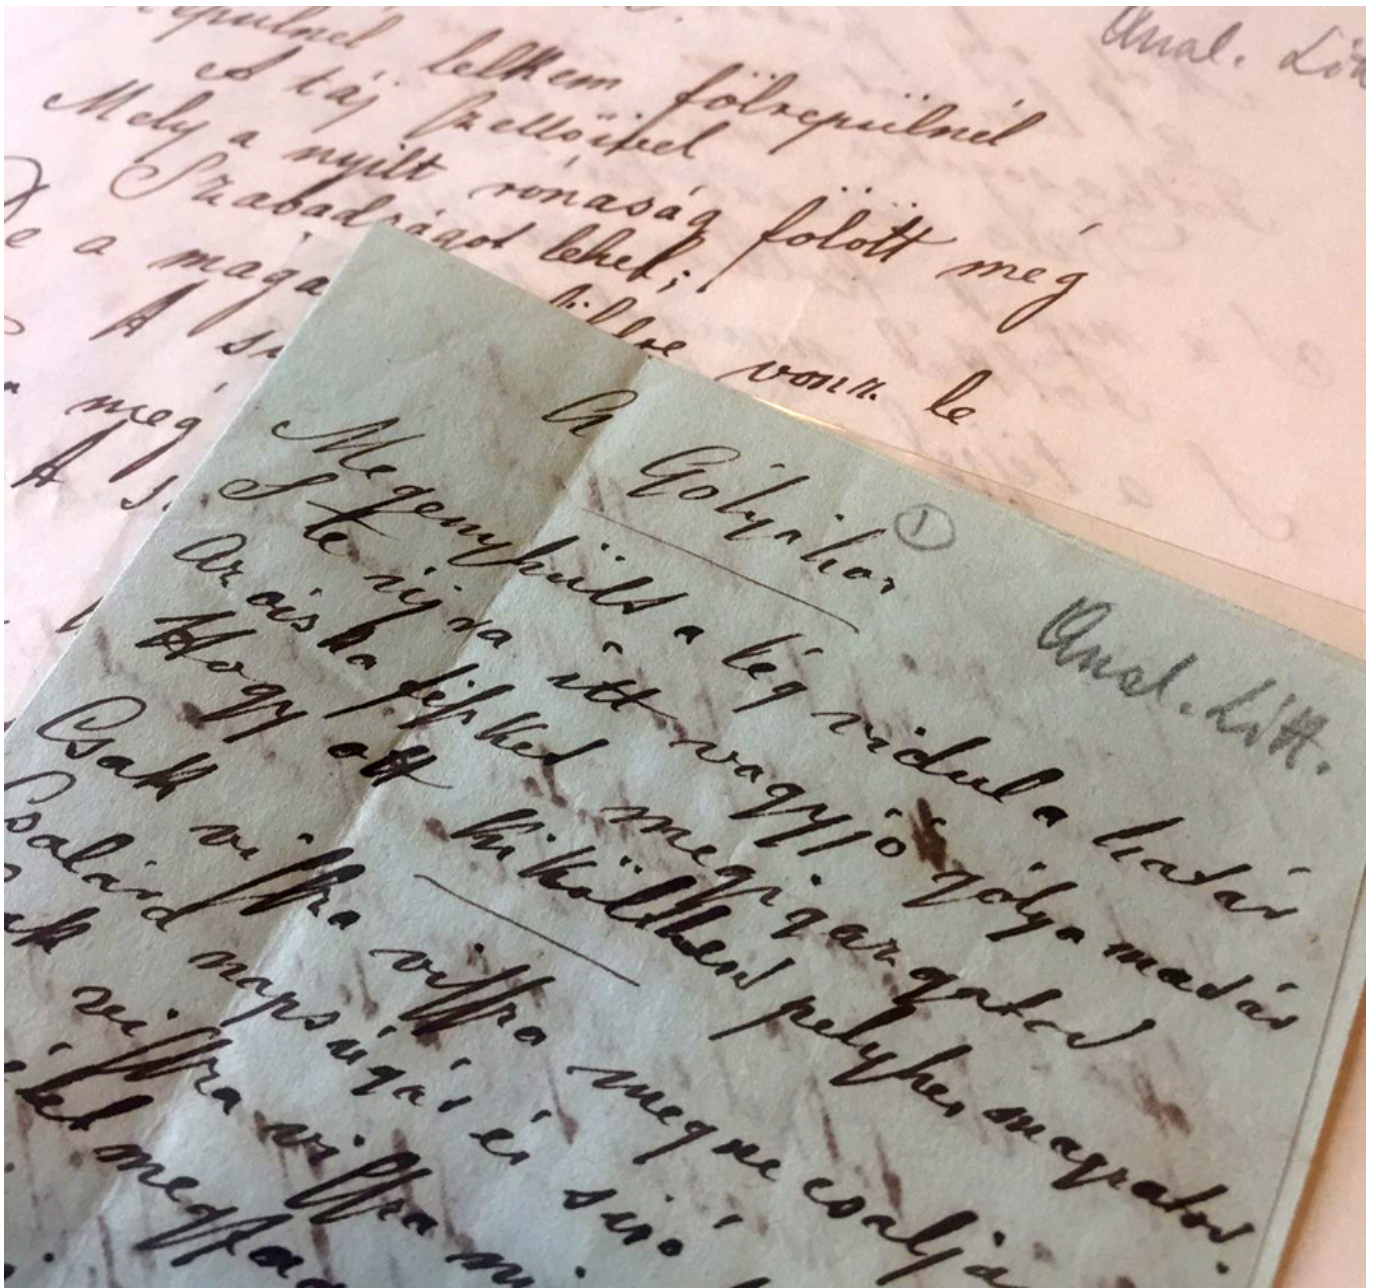 Anal. Litt
repülnél lelkem fölrepülnél
A táj szellőivel
Mely a nyilt rónaság fölött még
Szabadságot lehel;
De a maga földre vonz le
A su
meg
A s
A Gólyához
1
Anal. Litt.
Megenyhült a lég vidul a határ
S te ujra itt vagy jó gólya madár
Az ócska fészket megigazgatod
Hogy ott kikölthesd pelyhes magzatod.
Csak vissza vissza meg ne csalja
Csalárd napsugár és siró
ak vissza vissza ni
élet megfag